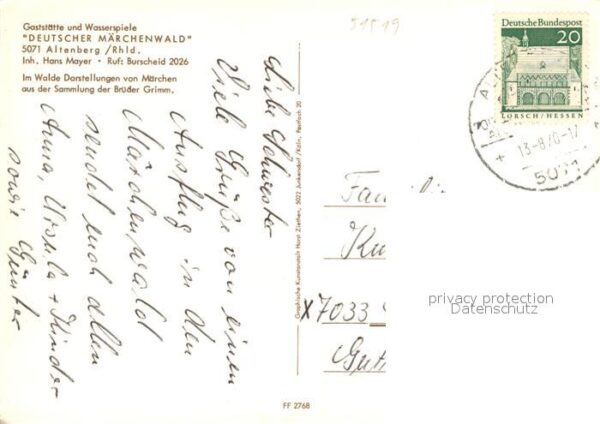 Gaststätte und Wasserspiele
"DEUTSCHER MÄRCHENWALD"
5071 Altenberg /Rhld.
Inh. Hans Mayer • Ruf: Burscheid 2026
Im Walde Darstellungen von Märchen
aus der Sammlung der Brüder Grimm.
51519
Deutsche Bundespost
20
LORSCH / HESSEN
13-8/70-17
5071
Liebe Schwester
Viele Grüße von einem
Ausflug in den
Märchenwald
sendet euch allen
Anna, Ursula + Kinder
sowie Günter
Graphische Kunstanstalt Horst Ziethen, 5022 Junkersdorf/Köln, Postfach 20
Fam
Ku
X7033
FF 2768
privacy protection
Datenschutz